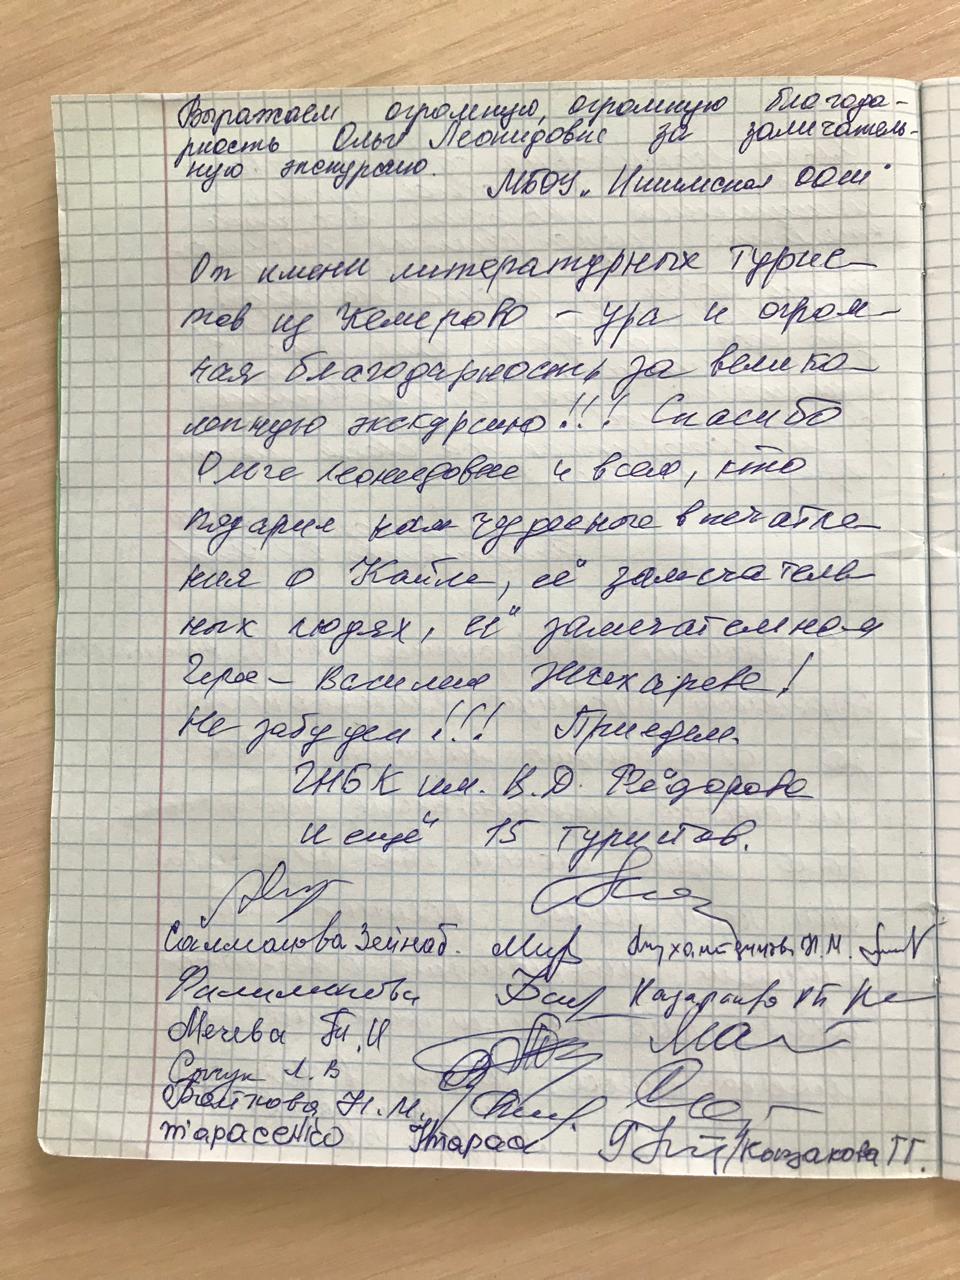 Выражаем огромную, огромную благода-
рность Ольге Леонидовне за замечатель-
ную экскурсию.
МБОУ „Ишимская ООШ"
От имени литературных турис-
тов из Кемерово - ура и огром-
ная благодарность за велико-
лепную экскурсию!!! Спасибо
Ольге Леонидовне и всем, кто
подарил нам чудесные впечатле-
ния о Кайле, её замечатель-
ных людях, её замечательном
Герое - Василии Жихареве!
Не забудем!!! Приедем.
ГНБК им. В.Д. Фёдорова
и ещё 15 туристов.
Салманова Зейнаб.
Филимонова
Мечева Т.И
Л.В
Н.М.
Тарасенко Ктарас
Казакова ТГ.